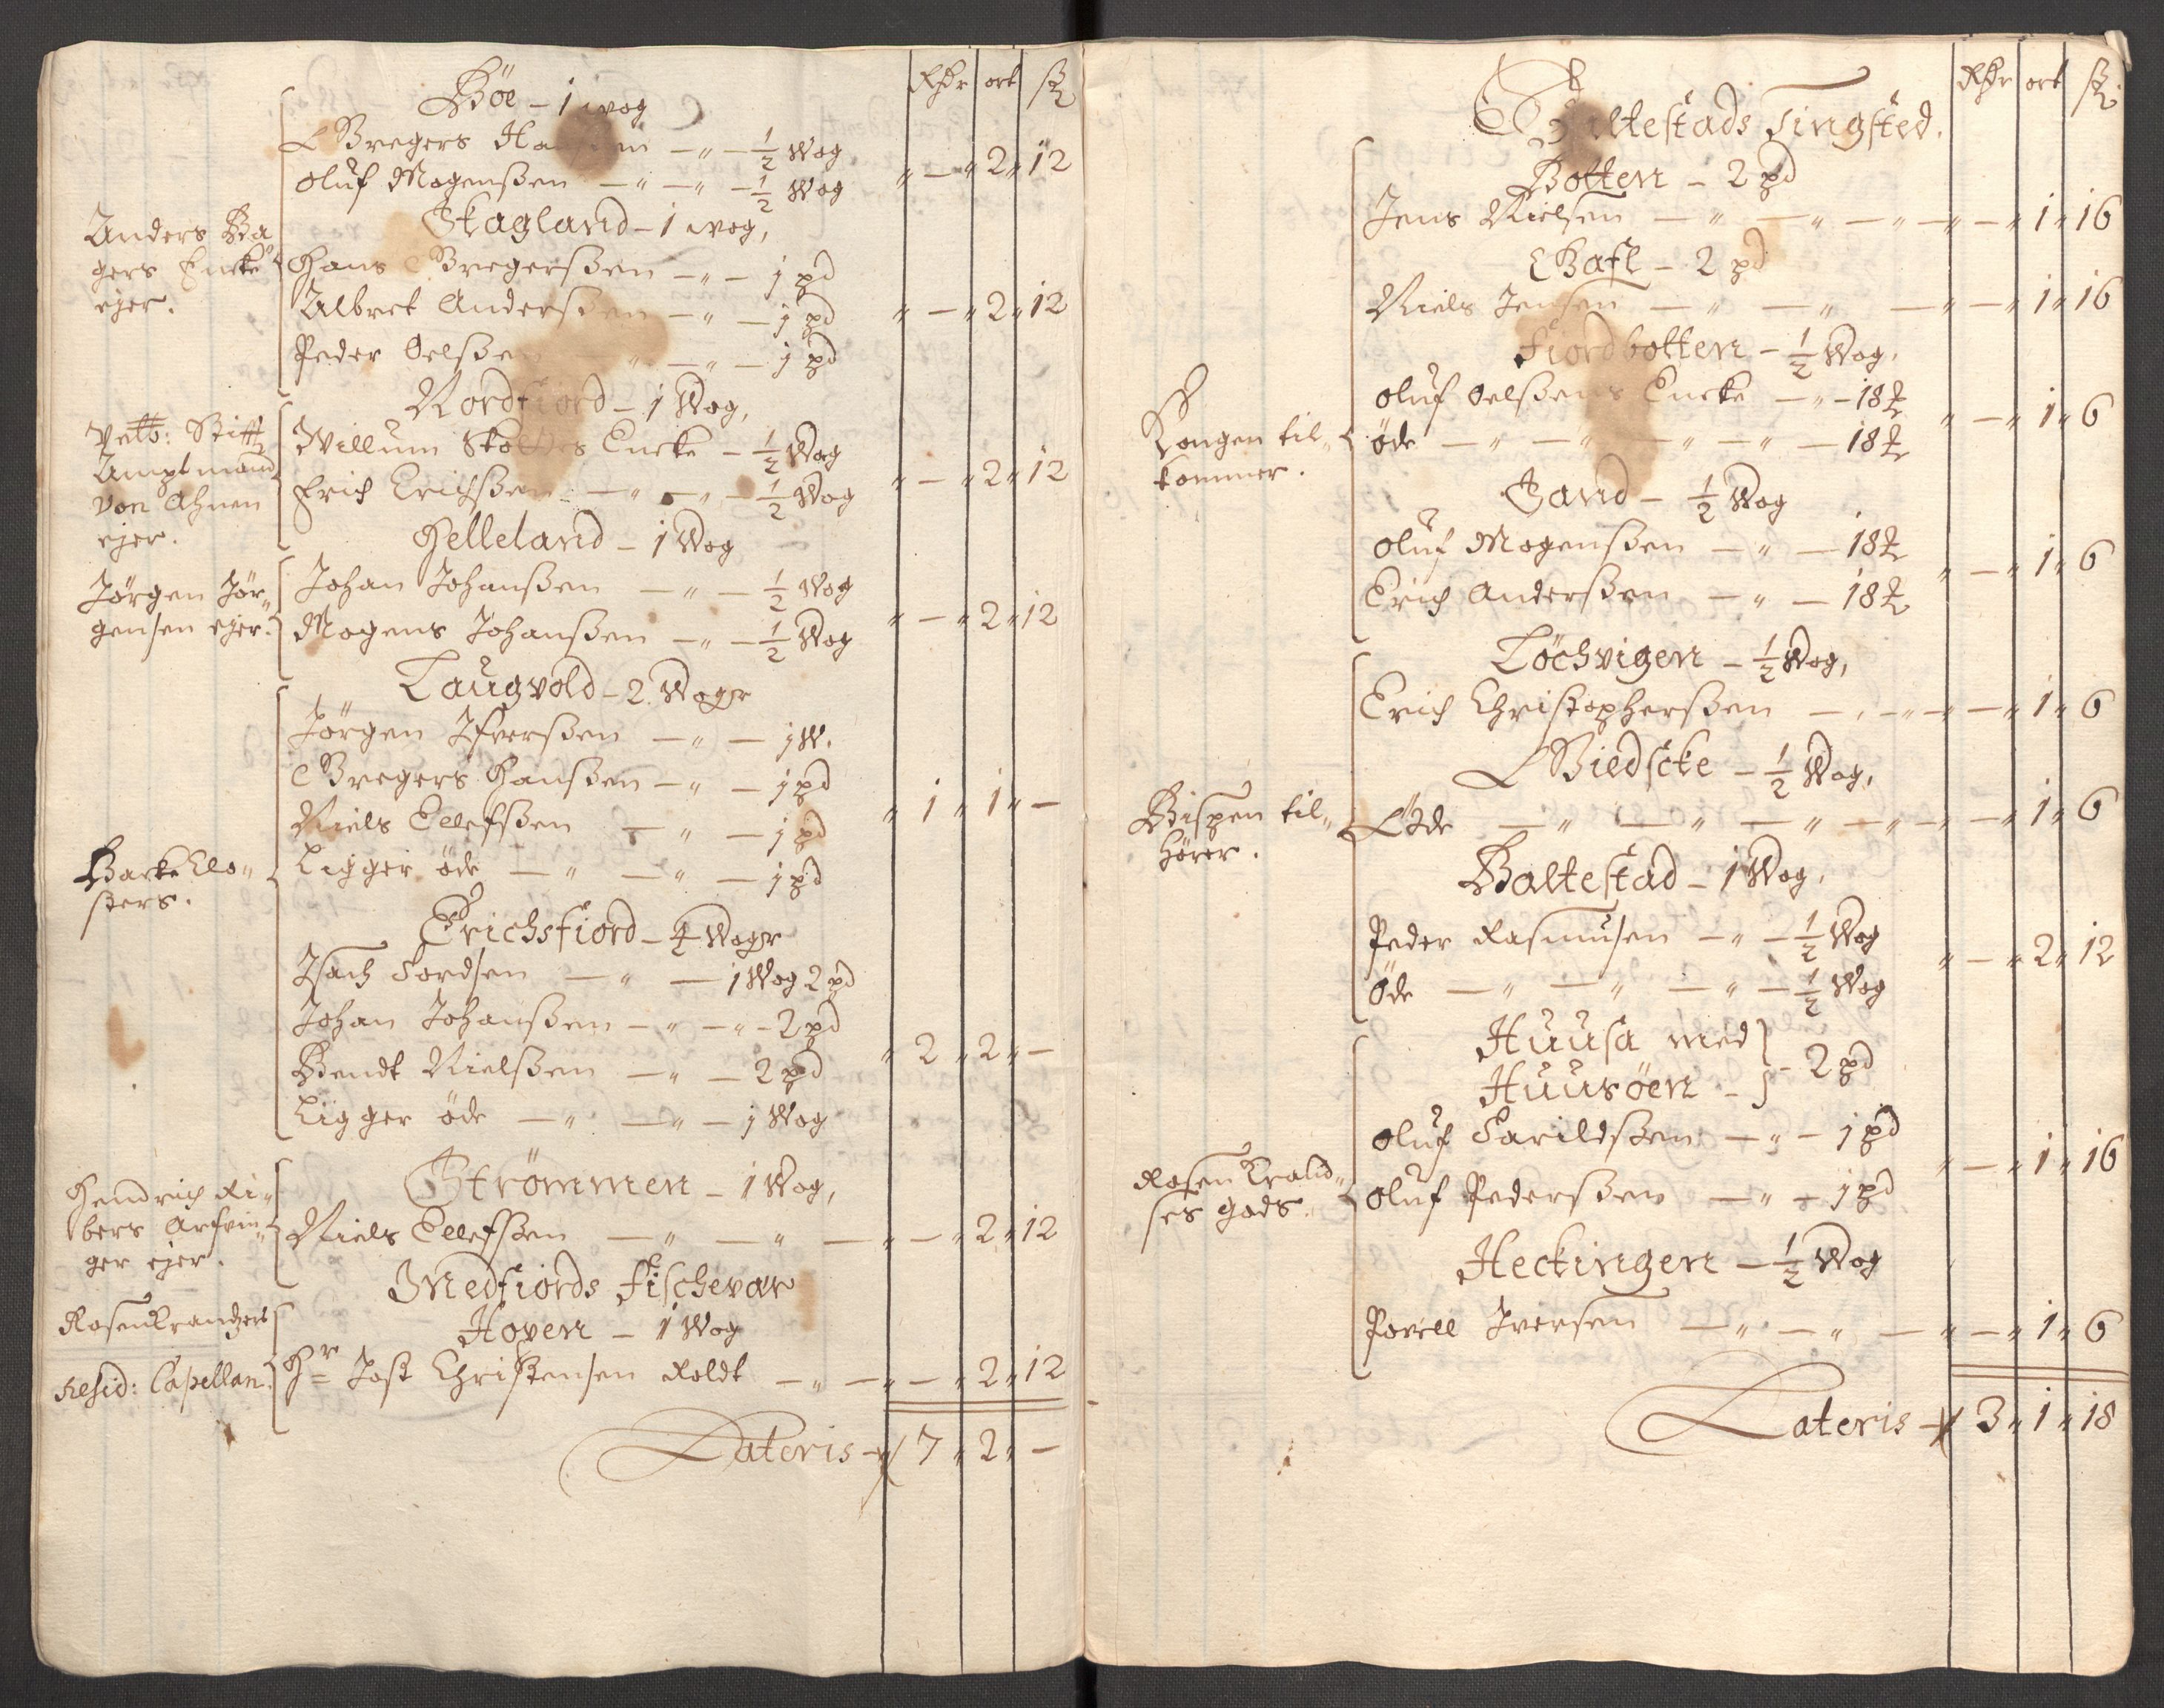 Rdr ort ß
Böe – 1 wog
Bregers Hansen – " – ½ Wog
Oluf Mogenßen – " – " – ½ Wog " – " 2 " 12
Skagland – 1 wog,
Anders Ba
gers Encke
ejer.
Hans Bregerßen – " – 1 pd
Albret Anderßen – " – 1 pd " – " 2 " 12
Peder Oelßen " – " – 1 pd
Nordfiord – 1 Wog,
Velb: Stifft
Amptmand
von Ahnen
ejer.
Willum Encke – ½ Wog
Erich Erichßen – " – " – ½ Wog " – " 2 " 12
Helleland – 1 Wog
Jørgen Jør„
gensen ejer.
Johan Johanßen – " – ½ Wog
Mogens Johanßen – " – ½ Wog " – " 2 " 12
Laugvold – 2 Woger
Jørgen Ifverßen – " – 1 W.
Bregers Hanßen – " – 1 pd
Niels Ellefßen – " – 1 pd " 1 " 1 " –
Ligger øde – " – " – 1 pd
Barke Clo„
sters.
Erichsfiord – 4 Woger
Isach Tordsen – " – 1 Wog 2 pd
Johan Johanßen – " – " – 2 pd
Bendt Nielßen – " – 2 pd " 2 " 2 " –
Ligger øde – " – " – 1 Wog
Strömmen – 1 Wog,
Hendrich Ri„
bers Arfvin„
ger ejer.
Niels Ellefßen – " – " – " – " 2 " 12
Medfiords Fischevær
Hoyen – 1 Wog
Rosenkrandzes
Resid: Capellan.
Hr Jost Christensen Roldt – " – " – " 2 " 12
Lateris – 7 " 2 " –
Rdr ort ß
Baltestads Tingsted.
Botten – 2 pd
Jens Nielsen – " – " – " – " – " 1 " 16
Bafl – 2 pd
Niels Jensen – " – " – " – " 1 " 16
Fiordbotten – ½ Wog,
Kongen til„
kommer.
Oluf Oelßens Encke – " – 18 ℔
öde – " – " – " – " – 18 ℔ " – " 1 " 6
Sand – ½ Wog
Oluf Mogenßen – " – 18 ℔
Erich Anderßen – " – 18 ℔ " – " 1 " 6
Löchvigen – ½ Wog,
Erich Christopherßen – " – " – " – " 1 " 6
– ½ Wog,
Bispen til„
hører.
Öde – " – " – " – " – " 1 " 6
Baltestad – 1 Wog,
Peder Rasmusen – " – ½ Wog
Øde – " – " – " – ½ Wog " – " 2 " 12
Huusa med
Huusöen – } – 2 pd
Oluf Tarildßen – " – 1 pd
Rosenkrand„
ses gods.
Oluf Pederßen – " – 1 pd " – " 1 " 16
Heckingen – ½ Wog
Povell Iversen – " – " – " – " 1 " 6
Lateris – 3 " 1 " 18